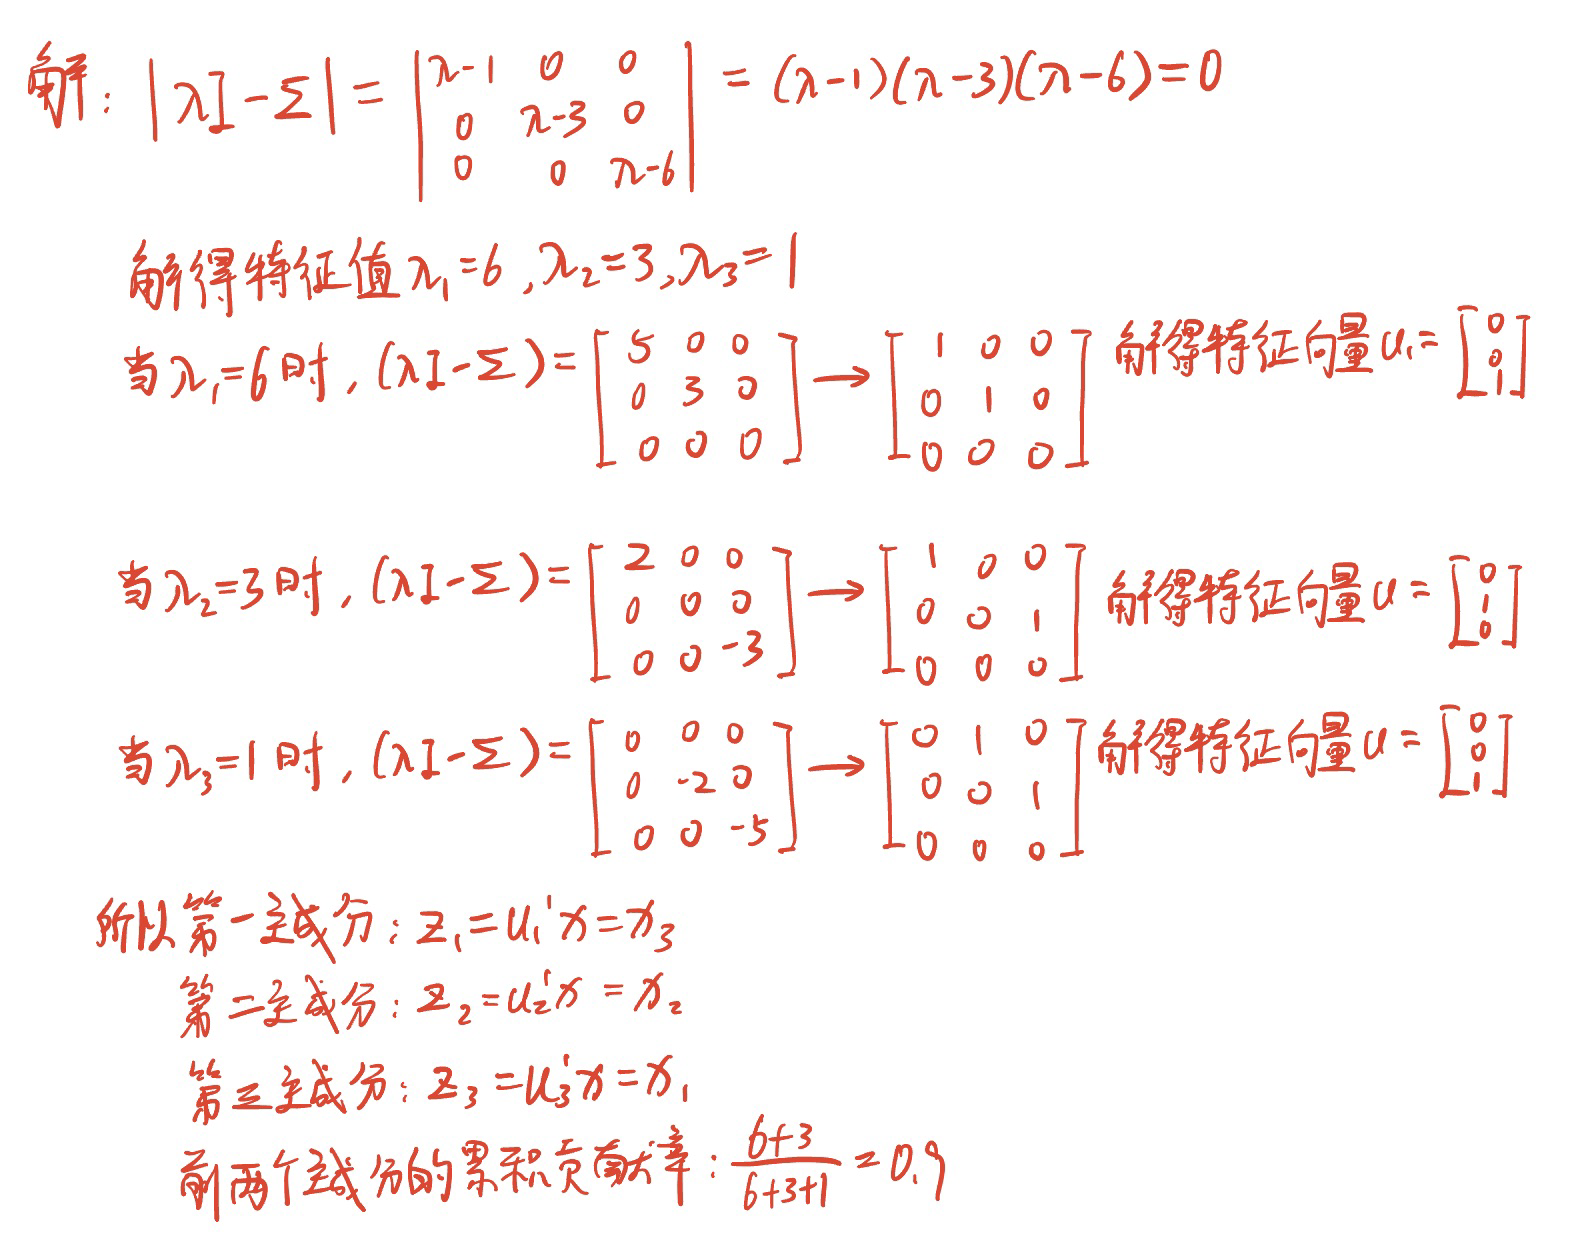 解: |λI-Σ| = | λ-1 0 0 ; 0 λ-3 0 ; 0 0 λ-6 | = (λ-1)(λ-3)(λ-6)=0
解得特征值λ₁=6,λ₂=3,λ₃=1
当λ₁=6时,(λI-Σ)= [ 5 0 0 ; 0 3 0 ; 0 0 0 ] → [ 1 0 0 ; 0 1 0 ; 0 0 0 ] 解得特征向量u₁= [ 0 ; 0 ; 1 ]
当λ₂=3时,(λI-Σ)= [ 2 0 0 ; 0 0 0 ; 0 0 -3 ] → [ 1 0 0 ; 0 0 1 ; 0 0 0 ] 解得特征向量u= [ 0 ; 1 ; 0 ]
当λ₃=1时,(λI-Σ)= [ 0 0 0 ; 0 -2 0 ; 0 0 -5 ] → [ 0 1 0 ; 0 0 1 ; 0 0 0 ] 解得特征向量u= [ 0 ; 0 ; 1 ]
所以第一主成分: z₁=u₁'x=x₃
第二主成分: z₂=u₂'x=x₂
第三主成分: z₃=u₃'x=x₁
前两个主成分的累积贡献率: (6+3)/(6+3+1) = 0.9